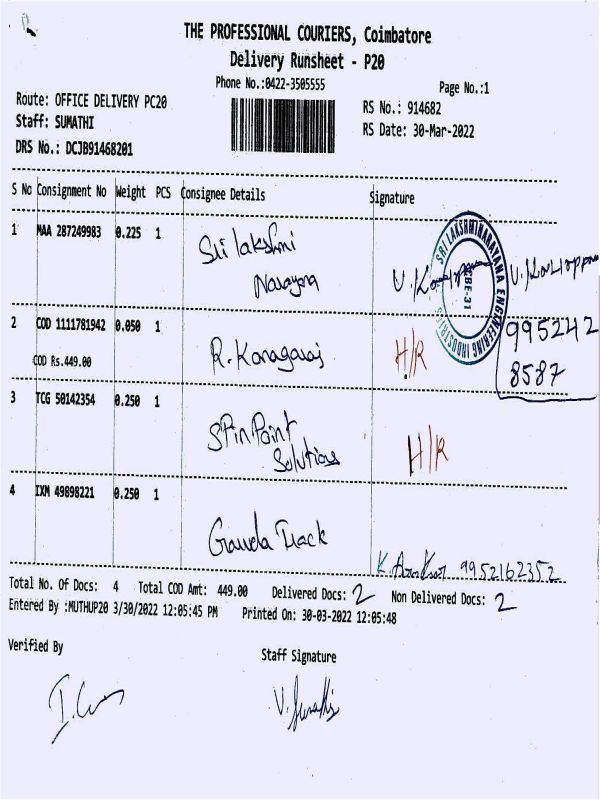 THE PROFESSIONAL COURIERS, Coimbatore
Delivery Runsheet - P20
Phone No.:0422-3505555
Page No.:1
Route: OFFICE DELIVERY PC20
RS No.: 914682
Staff: SUMATHI
RS Date: 30-Mar-2022
DRS No.: DCJB91468201
S No Consignment No Weight PCS Consignee Details Signature
1 MAA 287249983 0.225 1 Sri lakshmi
Narayana
SRI LAKSHMINARAYANA ENGINEERING INDUSTRIES
CBE-31
2 COD 1111781942 0.050 1 R. Kanagaraj H/R 995242
8587
COD Rs.449.00
3 TCG 50142354 0.250 1 SPin Point
Solutions H/R
4 IXM 49898221 0.250 1 Gawda Track
K. 9952162352
Total No. Of Docs: 4 Total COD Amt: 449.00 Delivered Docs: 2 Non Delivered Docs: 2
Entered By :MUTHUP20 3/30/2022 12:05:45 PM Printed On: 30-03-2022 12:05:48
Verified By
Staff Signature